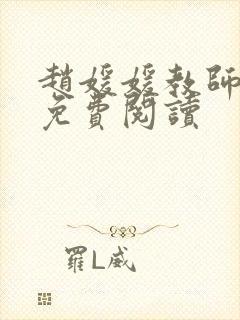 趙媛媛教師
免費閱讀
羅L威